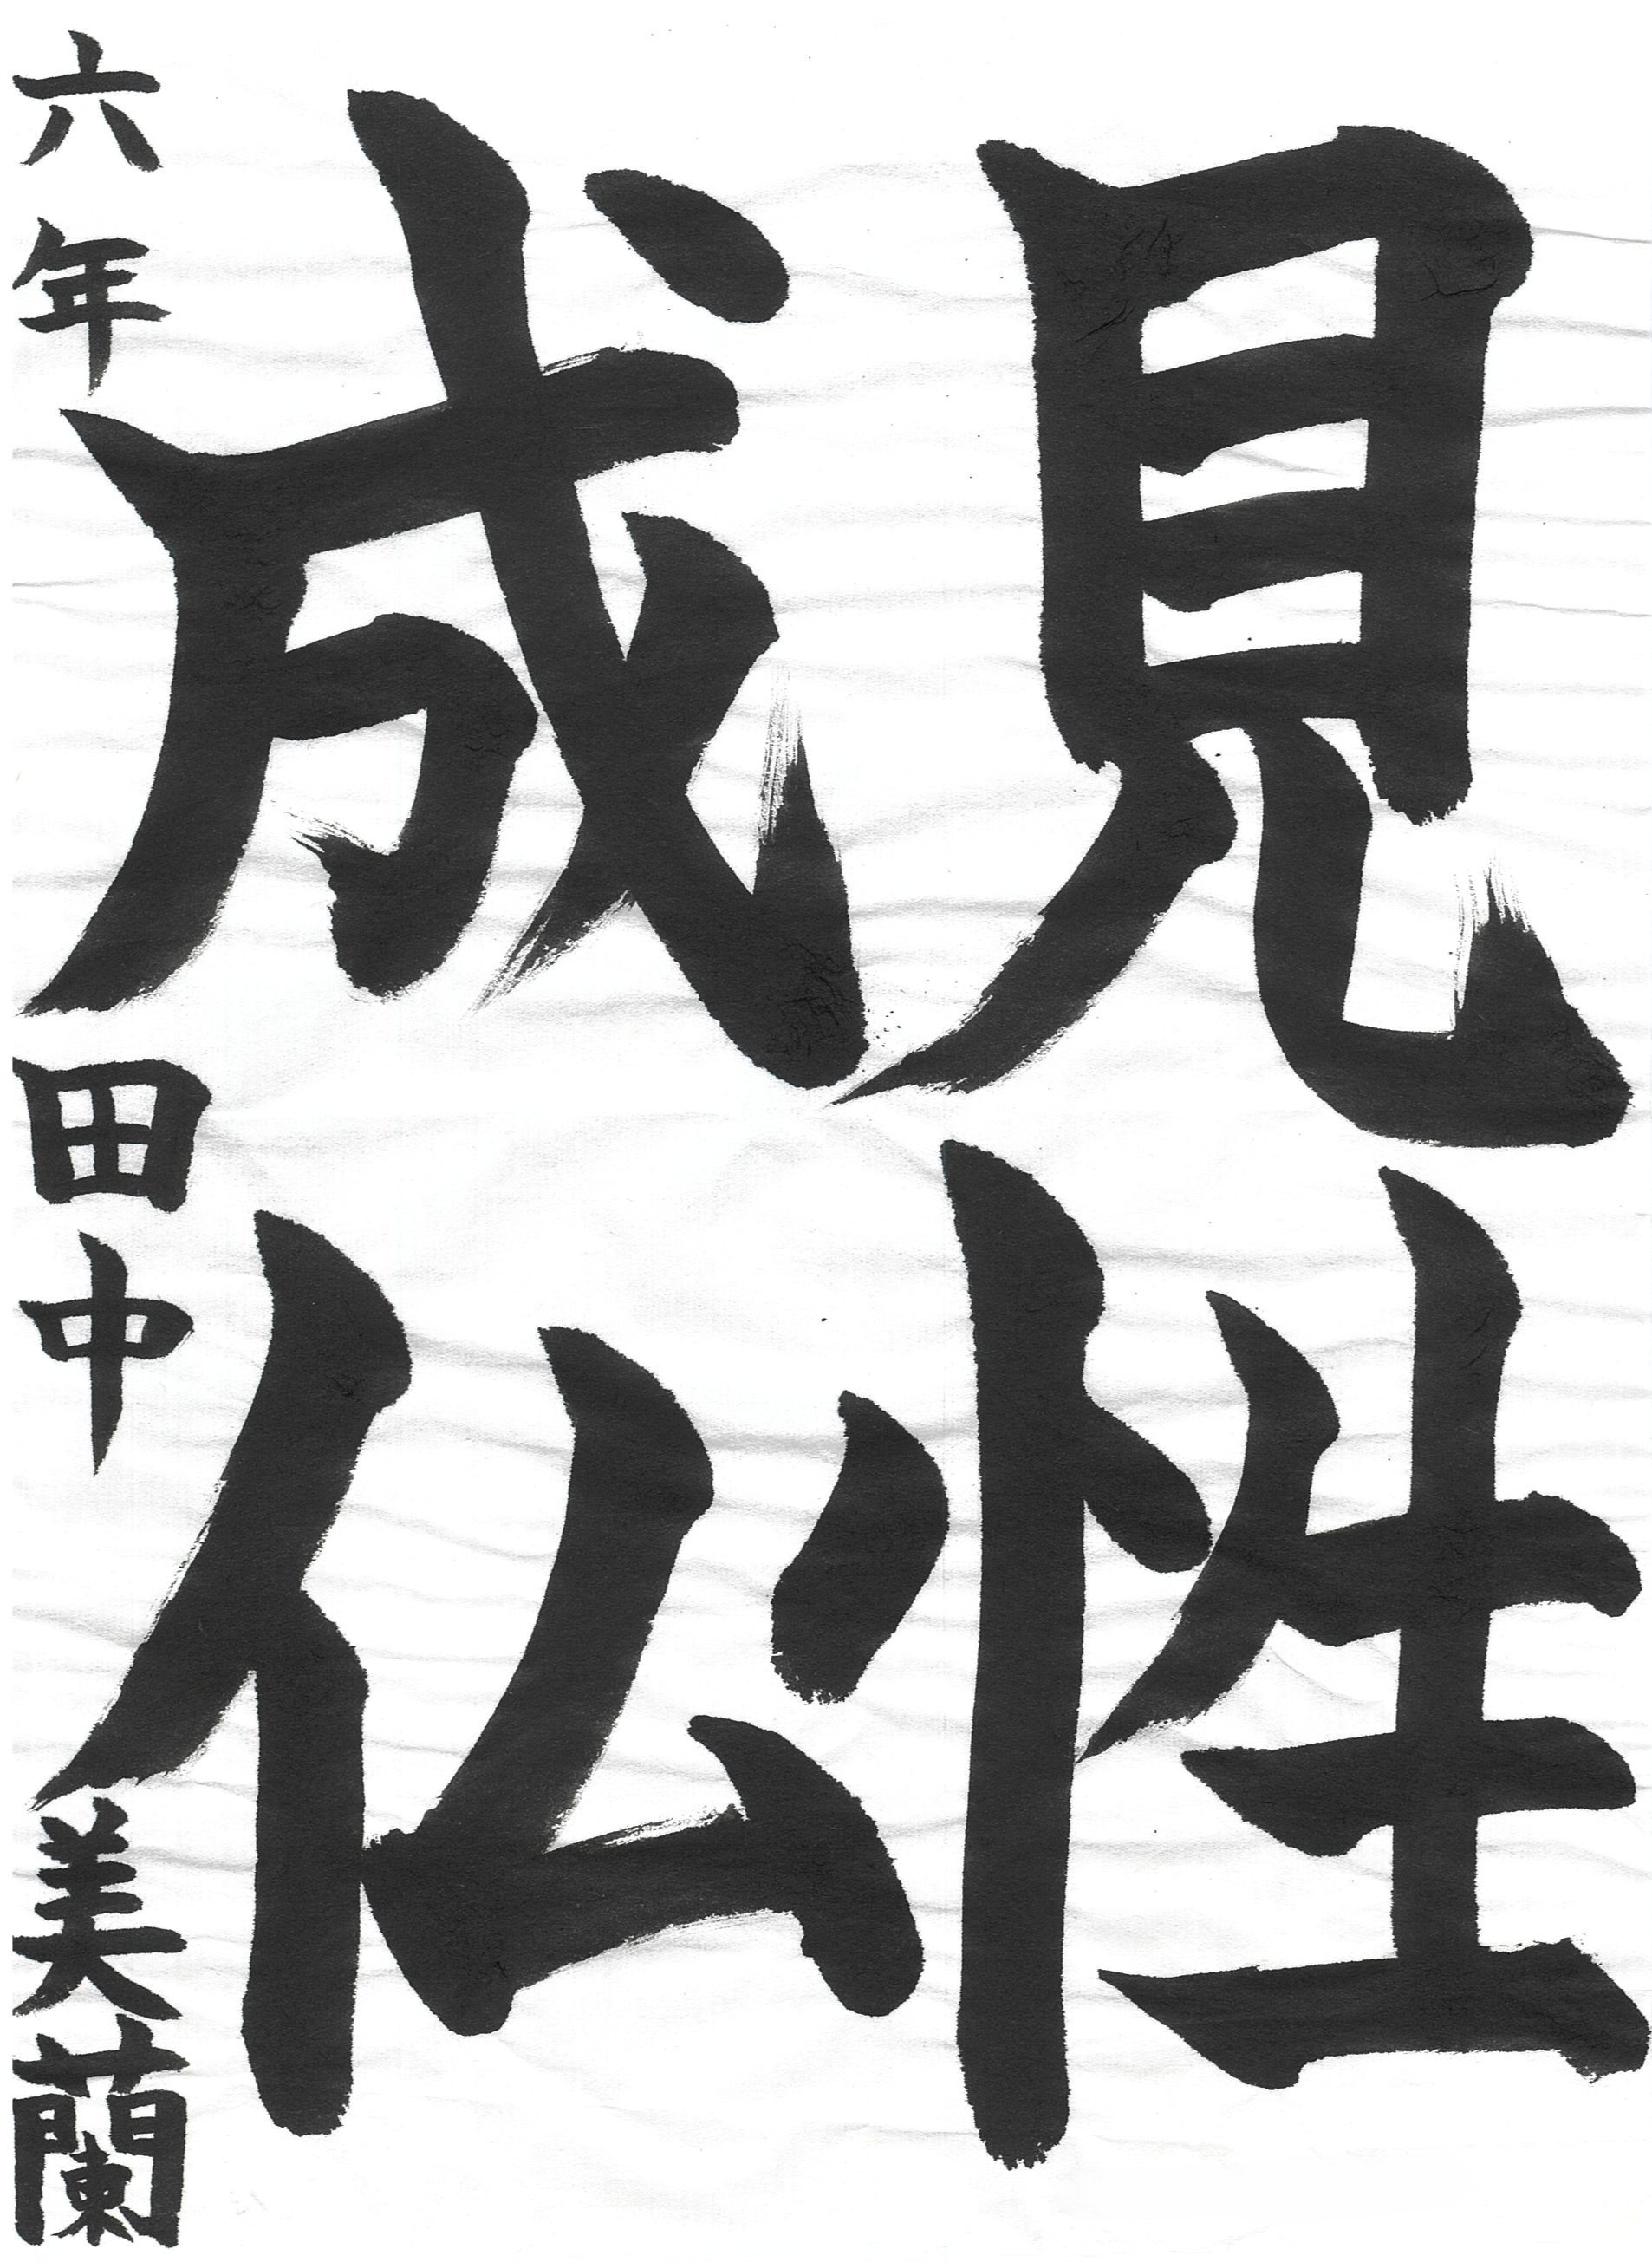 見性
成仏
六年 田中 美蘭